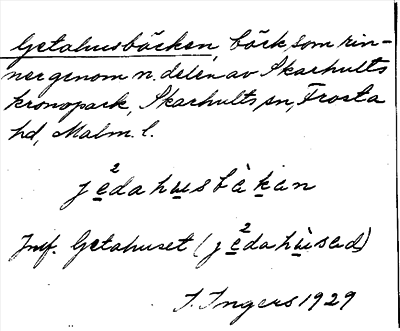 Getahusbäcken, bäck, som rin-
ner genom n. delen av Skarhults
kronopark, Skarhults sn, Frosta
hd, Malm. l.
je²dahusbàkan
Jmf. Getahuset (je²dahùsad)
I. Ingers 1929